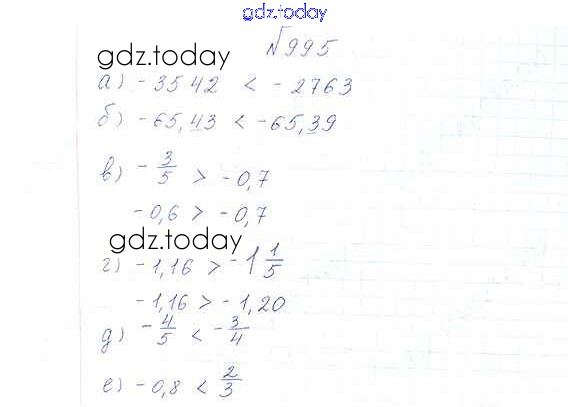 gdz.today
gdz.today
№995
а) -3542 < -2763
б) -65,43 < -65,39
в) -3/5 > -0,7
-0,6 > -0,7
gdz.today
г) -1,16 > -1 1/5
-1,16 > -1,20
д) -4/5 < -3/4
е) -0,8 < 2/3